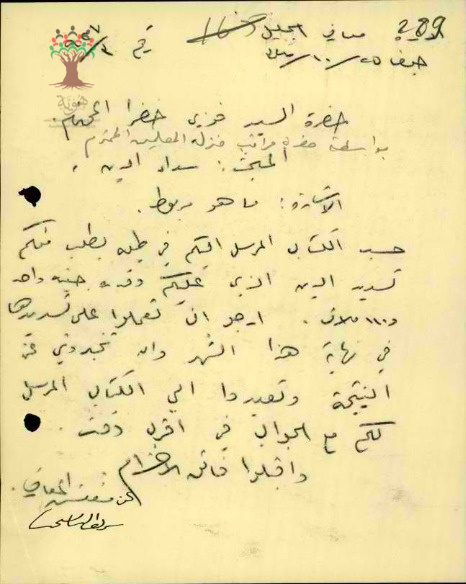 289
معارف الجليل
حيفا ٢٥/١٠/
رقم
حضرة السيد فوزي خضرا المحترم
بواسطة حضرة مراقب منزل المعلمين المحترم
المبحث: سداد الدين.
الاشارة: ما هو مربوط.
حسب الكتاب المرسل اليكم في طيه يطلب منكم
تسديد الدين الذي عليكم وقدره جنيه واحد
و ملات. ارجو ان تعملوا على تسديدها
في نهاية هذا الشهر وان تخبروني عن
النتيجة وتعيدوا الي الكتاب المرسل
لكم مع الجواب في اقرب وقت.
واقبلوا فائق الاحترام
عن مفتش المعارف